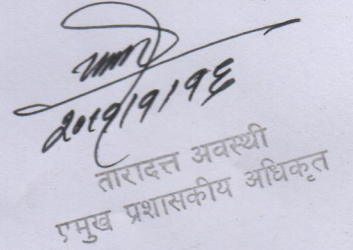 २०७९।९।१६
तारादत्त अवस्थी
प्रमुख प्रशासकीय अधिकृत